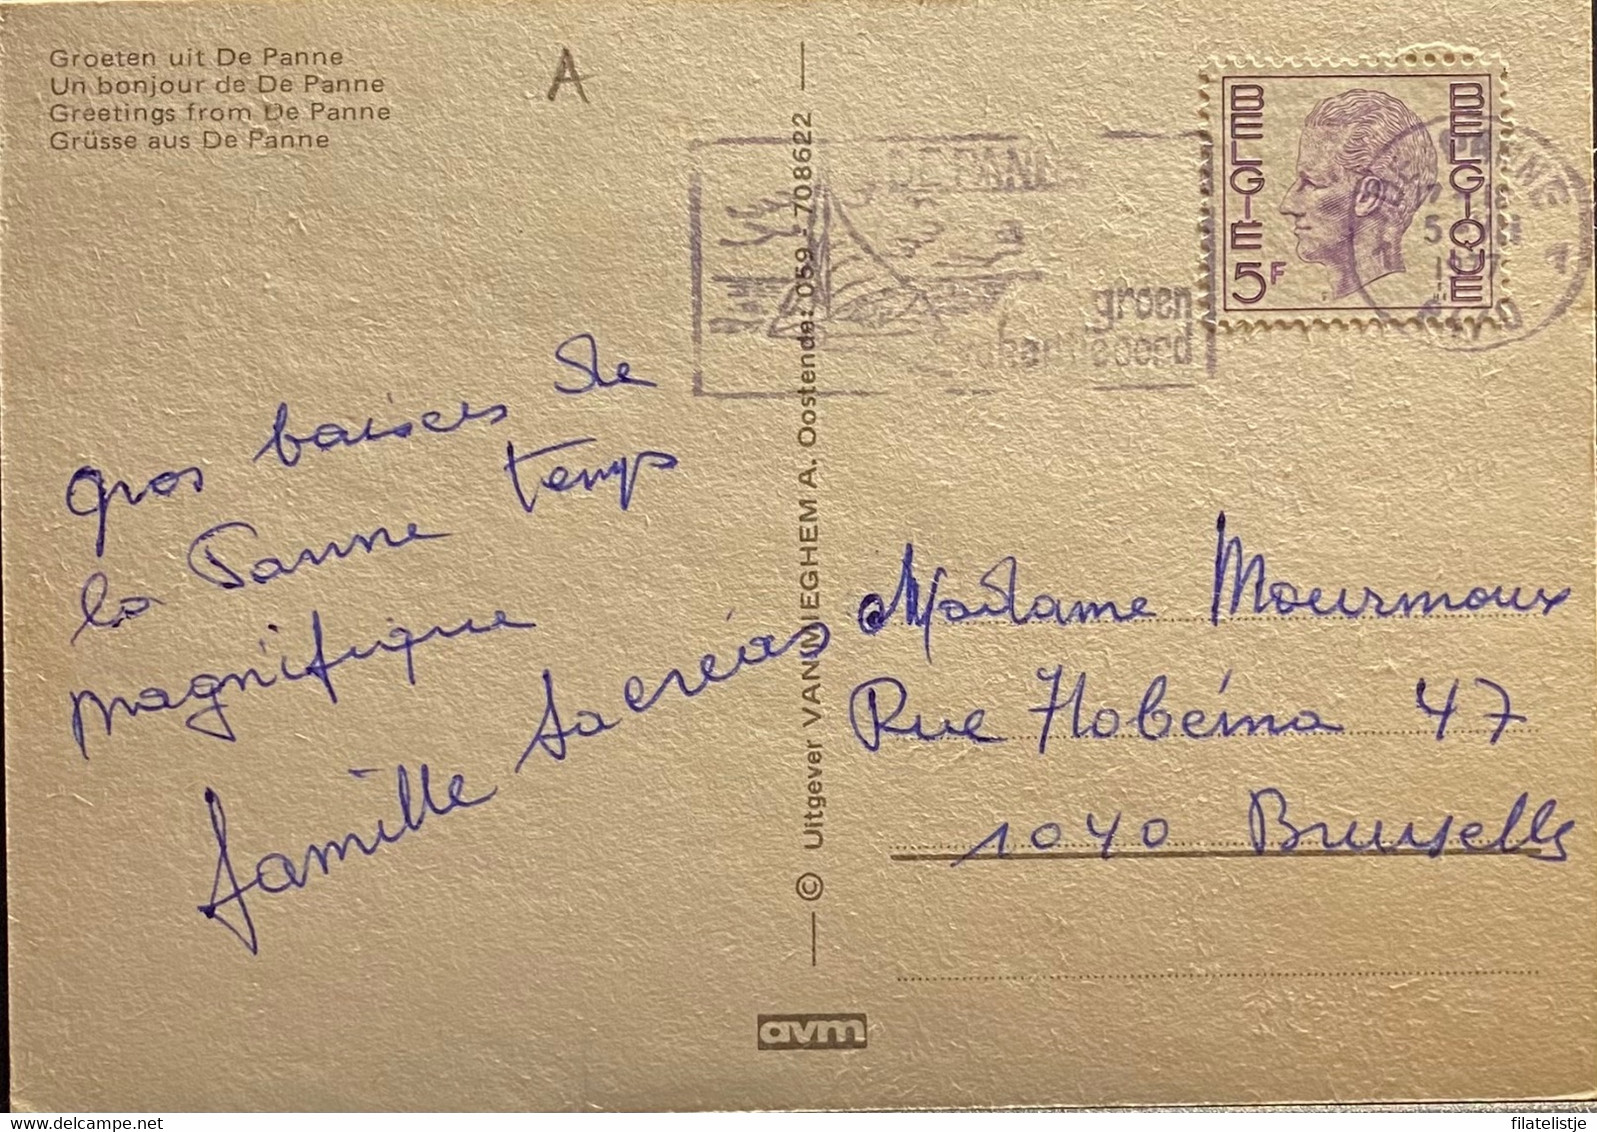 Groeten uit De Panne
Un bonjour de De Panne
Greetings from De Panne
Grüsse aus De Panne
A
DE PANNE
groen
BELGIE
BELGIQUE
5F
gros baisers de
la Panne temps
magnifique
famille
© Uitgever VAN MIEGHEM A. Oostende: 059-708622
Madame Mourmoux
Rue Hobéma 47
1040 Bruxelles
avm
www.delcampe.net
filatelistje